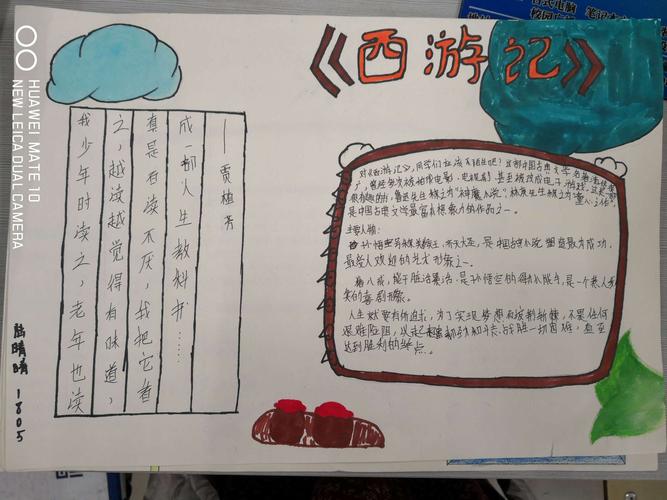 《西游记》
我少年时读之，老年也读
之，越读越觉得有味道，
真是百读不厌，我把它看
成一部人生教科书……
——贾植芳
对《西游记》，同学们应该不陌生吧？这部中国古典文学名著流传很
广，曾经多次被拍成电影、电视剧，甚至被改成电子游戏。这是一部
很有趣的书，鲁迅先生称之为“神魔小说”，林庚先生称之为“童心之作”，
是中国古典文学最富有想象力的作品之一。
主要人物：
孙悟空 又名美猴王、齐天大圣，是中国古代小说 塑造最为成功，
最受人欢迎的艺术形象之一。
猪八戒，能干脏活累活，是孙悟空的得力助手，是一个惹人发
笑的喜剧形象。
人生就要有所追求，为了实现梦想应该披荆斩棘，不畏任何
艰难险阻，以
战胜一切困难，直至
达到胜利的终点。
陆晴晴 1805
HUAWEI MATE 10
NEW LEICA DUAL CAMERA